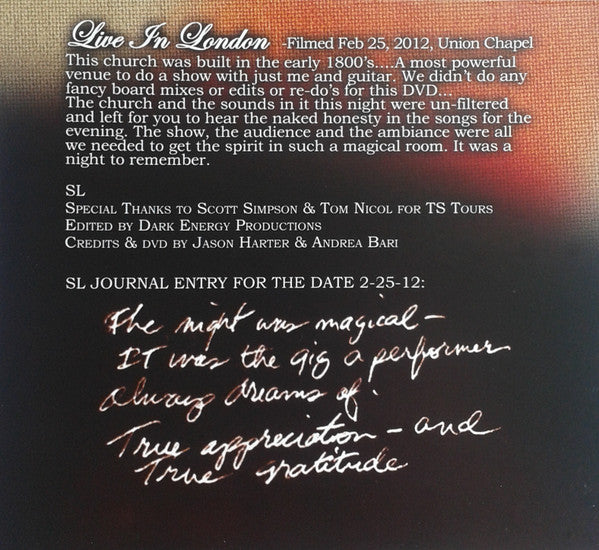 Live In London -Filmed Feb 25, 2012, Union Chapel
This church was built in the early 1800's....A most powerful
venue to do a show with just me and guitar. We didn't do any
fancy board mixes or edits or re-do's for this DVD...
The church and the sounds in it this night were un-filtered
and left for you to hear the naked honesty in the songs for the
evening. The show, the audience and the ambiance were all
we needed to get the spirit in such a magical room. It was a
night to remember.
SL
Special Thanks to Scott Simpson & Tom Nicol for TS Tours
Edited by Dark Energy Productions
Credits & dvd by Jason Harter & Andrea Bari
SL JOURNAL ENTRY FOR THE DATE 2-25-12:
The night was magical-
IT was the gig a performer
always dreams of.
True appreciation - and
True gratitude